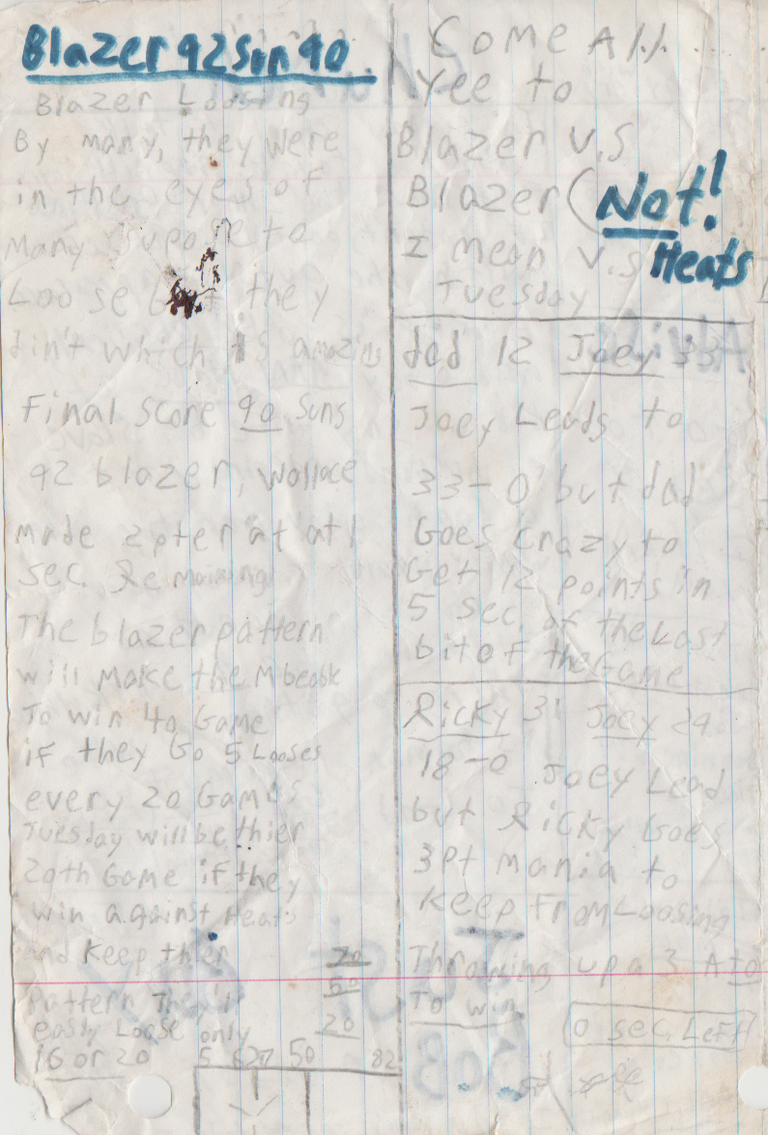 Blazer 92 Sun 90
Blazer Loosing
By many, they were
in the eyes of
many supose to
Loose but they
din't which is amazing
Final score 90 Suns
92 blazer, Wollace
made 2 pter at at 1
sec. Remaining
The blazer pattern
will make them beable
To win 40 Game
if they Go 5 Looses
every 20 Games
Tuesday will be thier
20th Game if they
win against Heats
and keep thier
pattern They'l
easly Loose only
16 or 20
20
60
20
5
50
82
Come All
Yee to
Blazer V.S
Blazer (Not!
I mean V.S Heats
Tuesday
dad 12 Joey 33
Joey Leads to
33-0 but dad
Goes crazy to
Get 12 points in
5 sec. of the Last
bit of the Game
Ricky 31 Joey 29
18-0 Joey Lead
but Ricky Goes
3pt mania to
Keep From Loosing
Throwing up a 3 At 0
To win
0 sec. Left